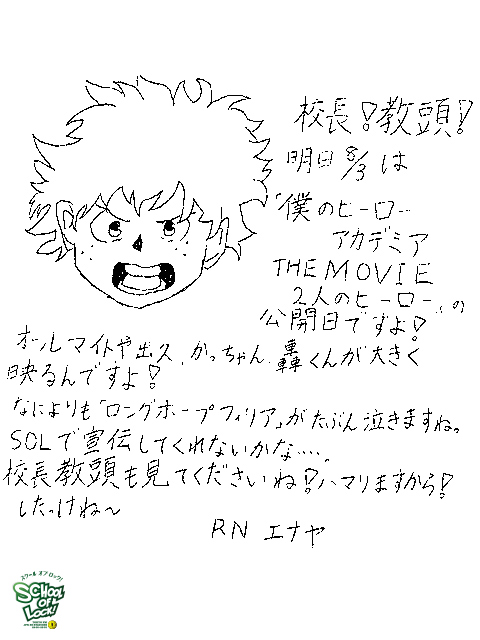 校長!教頭!
明日8/3は
「僕のヒーロー
アカデミア
THE MOVIE
2人のヒーロー」の
公開日ですよ!
オールマイトや出久、かっちゃん、轟くんが大きく
映るんですよ!
なによりも「ロングホープフィリア」がたぶん泣きますね。
SOLで宣伝してくれないかな……。
校長教頭も見てくださいね!ハマりますから!
したっけね〜
RN エナヤ
スクール オブ ロック!
SCHOOL
OF
LOCK!